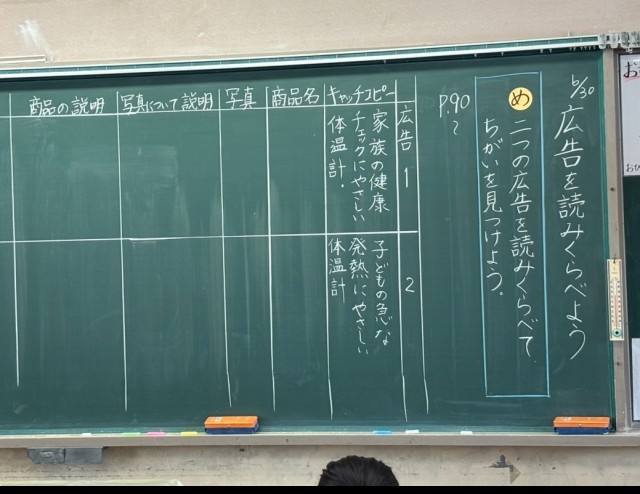 6/30
広告を読みくらべよう
め 二つの広告を読みくらべて、
ちがいを見つけよう。
P.90
〜
広告 1
2
キャッチコピー
家族の健康
チェックにやさしい
体温計.
子どもの急な
発熱にやさしい
体温計
商品名
写真
写真について説明
商品の説明